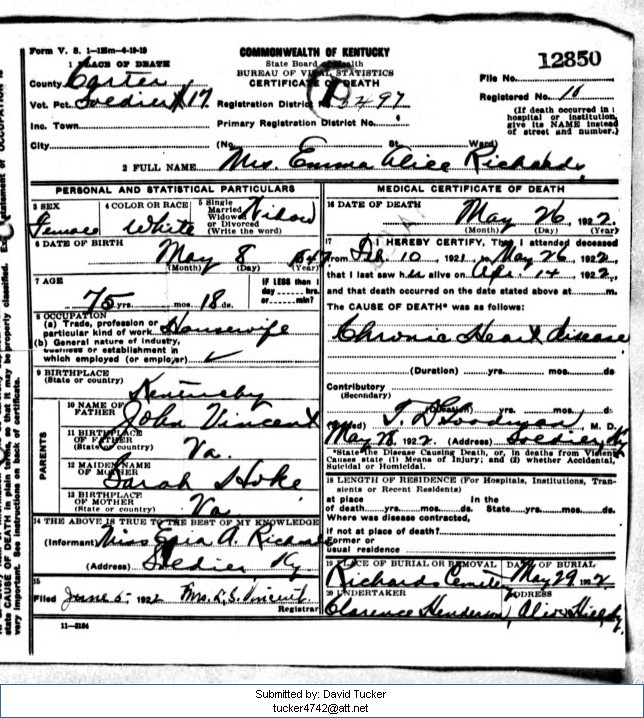 Form V. S. 1—125m—6-10-19
COMMONWEALTH OF KENTUCKY
State Board of Health
BUREAU OF VITAL STATISTICS
CERTIFICATE OF DEATH
12850
1 PLACE OF DEATH
County Carter
Vot. Pct. Soldier #17
Inc. Town
City
Registration District No.
Primary Registration District No.
(No. St. Ward)
File No.
Registered No. 16
(If death occurred in
hospital or institution,
give its NAME instead
of street and number.)
2 FULL NAME Mrs. Emma Alice Richards
PERSONAL AND STATISTICAL PARTICULARS
3 SEX
Female
4 COLOR OR RACE
White
5 Single
Married
Widowed
or Divorced
(Write the word)
Widow
6 DATE OF BIRTH
May 8
(Month) (Day) (Year)
7 AGE
75 yrs. mos. 18 ds.
IF LESS than 1
day hrs.
or min?
8 OCCUPATION
(a) Trade, profession or
particular kind of work Housewife
(b) General nature of industry,
business or establishment in
which employed (or employer) ✓
9 BIRTHPLACE
(State or country)
Kentucky
PARENTS
10 NAME OF
FATHER
John Vincent
11 BIRTHPLACE
OF FATHER
(State or country)
Va.
12 MAIDEN NAME
OF MOTHER
Sarah Hoke
13 BIRTHPLACE
OF MOTHER
(State or country)
Va
14 THE ABOVE IS TRUE TO THE BEST OF MY KNOWLEDGE
(Informant) Miss A. Richards
(Address) Soldier Ky
15
Filed June 5- 1922 Mrs. L. S. Vincent
Registrar
11—3184
MEDICAL CERTIFICATE OF DEATH
16 DATE OF DEATH
May 26, 1922.
(Month) (Day) (Year)
17
I HEREBY CERTIFY, That I attended deceased
from Feb 10, 1921, to May 26, 1922,
that I last saw her alive on Apr. 14, 1922,
and that death occurred on the date stated above at m.
The CAUSE OF DEATH* was as follows:
Chronic Heart disease
(Duration) yrs. mos. ds.
Contributory
(Secondary)
(Duration) yrs. mos. ds.
(Signed) T. D. Goodman, M. D.
May 28, 1922. (Address) Soldier, Ky
*State the Disease Causing Death, or, in deaths from Violent
Causes state (1) Means of Injury; and (2) whether Accidental,
Suicidal or Homicidal.
18 LENGTH OF RESIDENCE (For Hospitals, Institutions, Tran-
sients or Recent Residents)
At place In the
of death yrs. mos. ds. State yrs. mos. ds.
Where was disease contracted,
if not at place of death?
Former or
usual residence
19 PLACE OF BURIAL OR REMOVAL
Richards
DATE OF BURIAL
May 29 1922
20 UNDERTAKER
Clarence Henderson,
ADDRESS
Olive Hill, Ky.
Submitted by: David Tucker
tucker4742@att.net